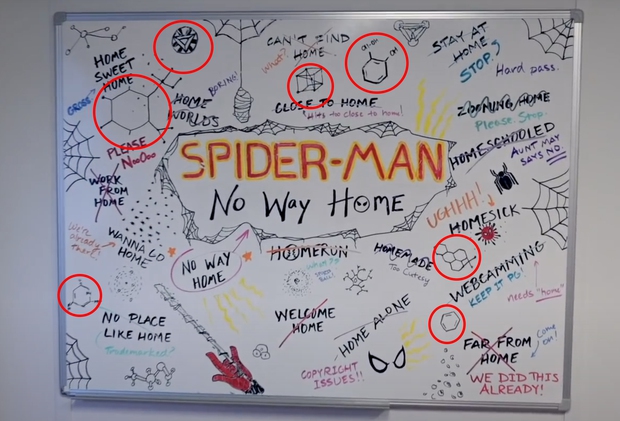 HOME
SWEET
HOME
GROSS
BORING!
CAN'T FIND
HOME
What?
STAY AT
HOME
STOP!
Hard pass.
HOME
WORLDS
CLOSE TO HOME
Hits to close to home!
ZOOMING HOME
Please. Stop.
HOMESCHOOLED
AUNT MAY
SAYS NO.
PLEASE
NoOOoo
SPIDER-MAN
No Way Home
WORK
FROM
HOME
UGHHH!
HOMESICK
We're
already
there!
WANNA GO
HOME
NO WAY
HOME
HOMERUN
HOMEMADE
Too Cutesy
WEBCAMMING
KEEP IT PG!
needs "home"
NO PLACE
LIKE HOME
Trademarked?
WELCOME
HOME
HOME ALONE
COPYRIGHT
ISSUES!!
FAR FROM
HOME
COME
ON!
WE DID THIS
ALREADY!